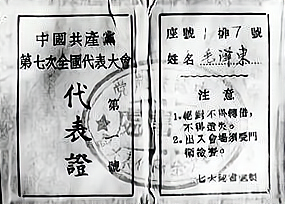 中國共產黨
第七次全國代表大會
代表證
第
號
座號 1 排 7 號
姓名 毛澤東
注意
1. 絕對不得轉借,
不得遺失。
2. 出入會場須受門
崗檢查。
七大秘書處製